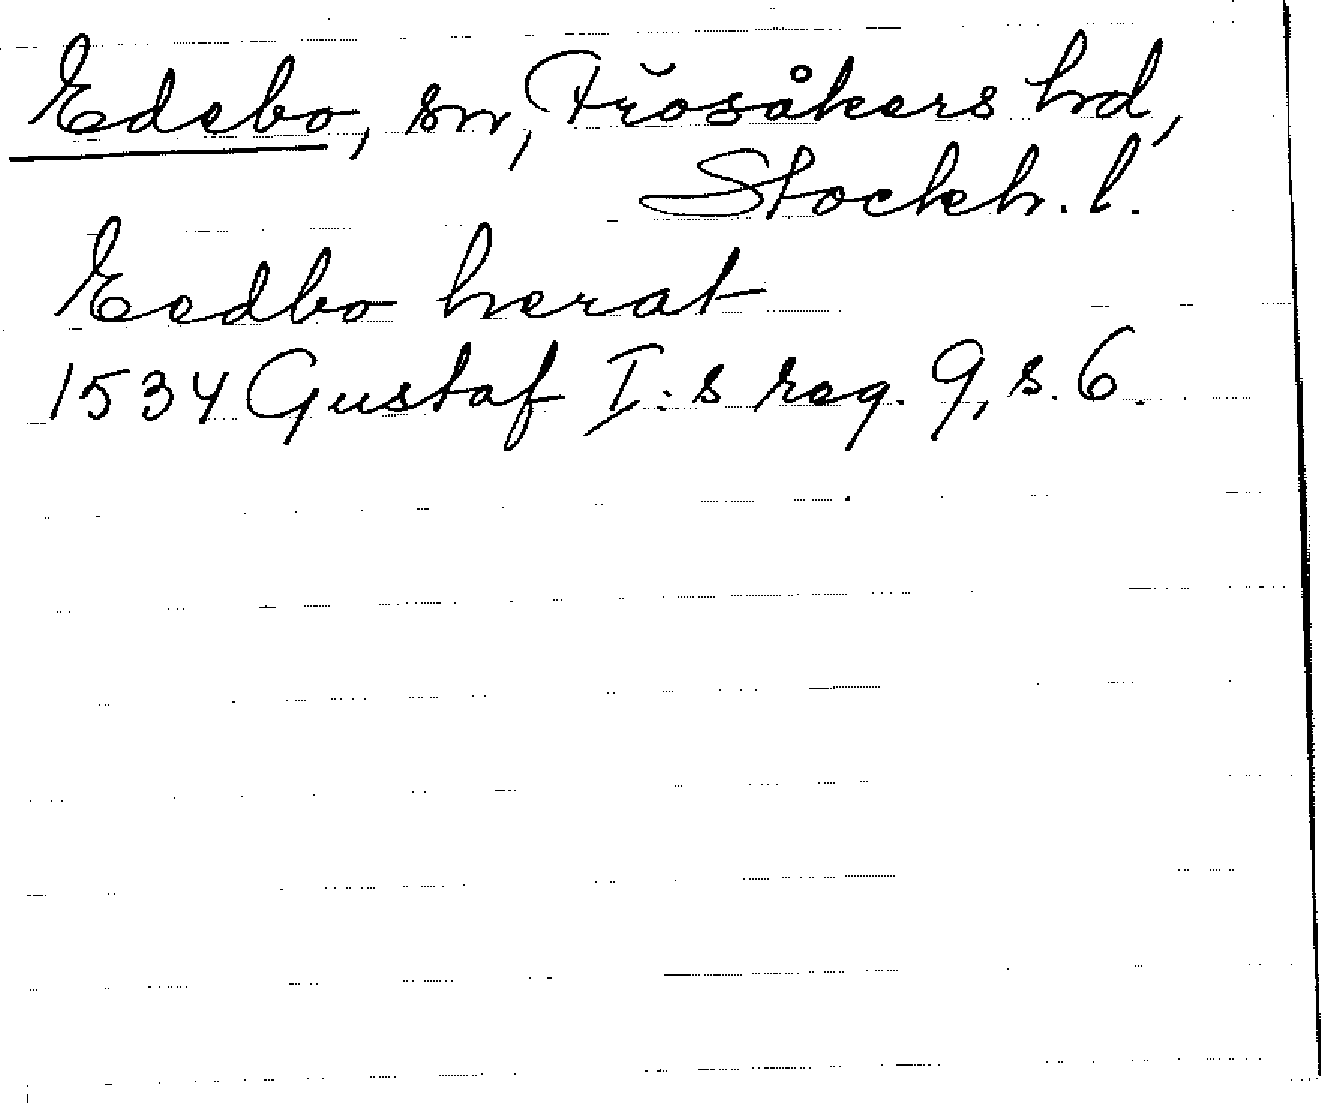 Edebo, sn, Frosåkers hd,
Stockh. l.
Eedbo herat
1534 Gustaf I:s reg. 9, s. 6.